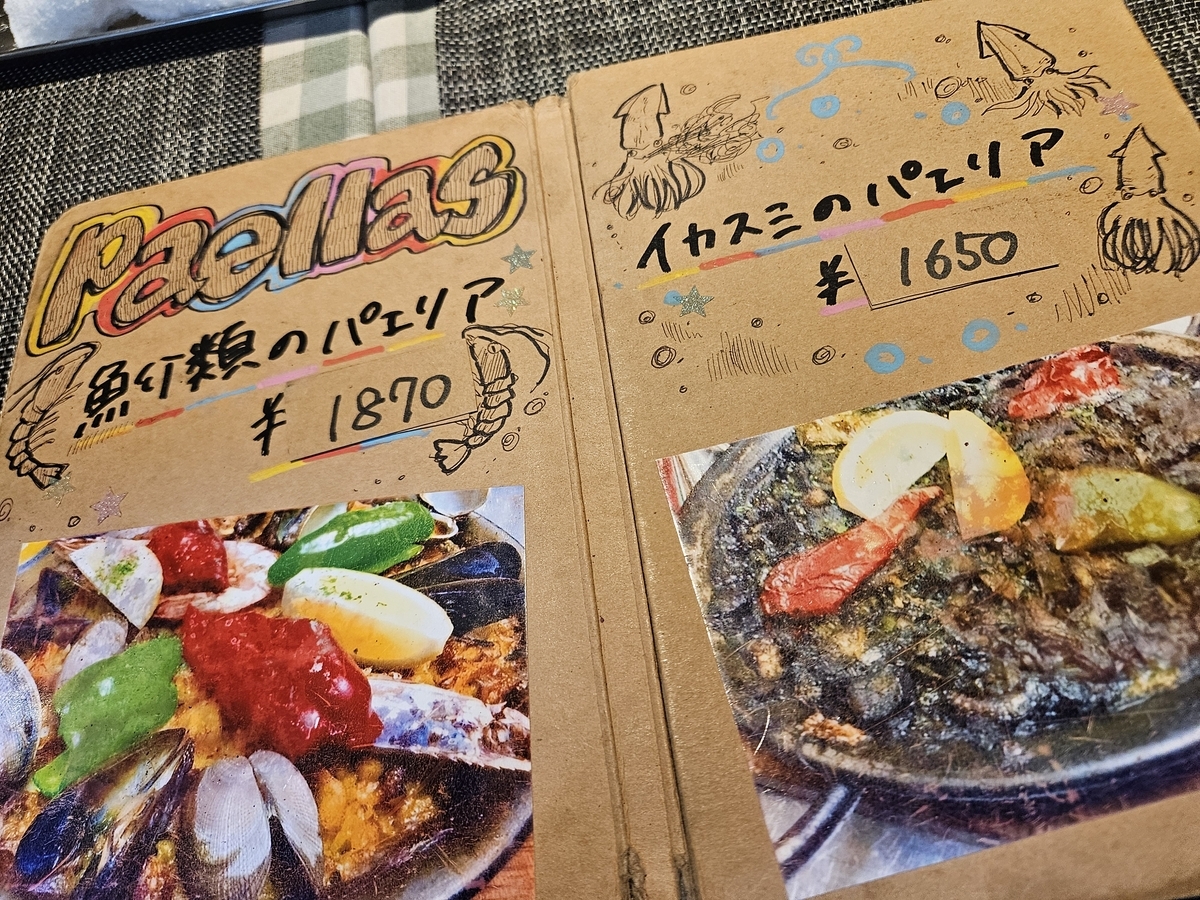 Paellas
魚介類のパエリア
¥ 1870
イカスミのパエリア
¥ 1650